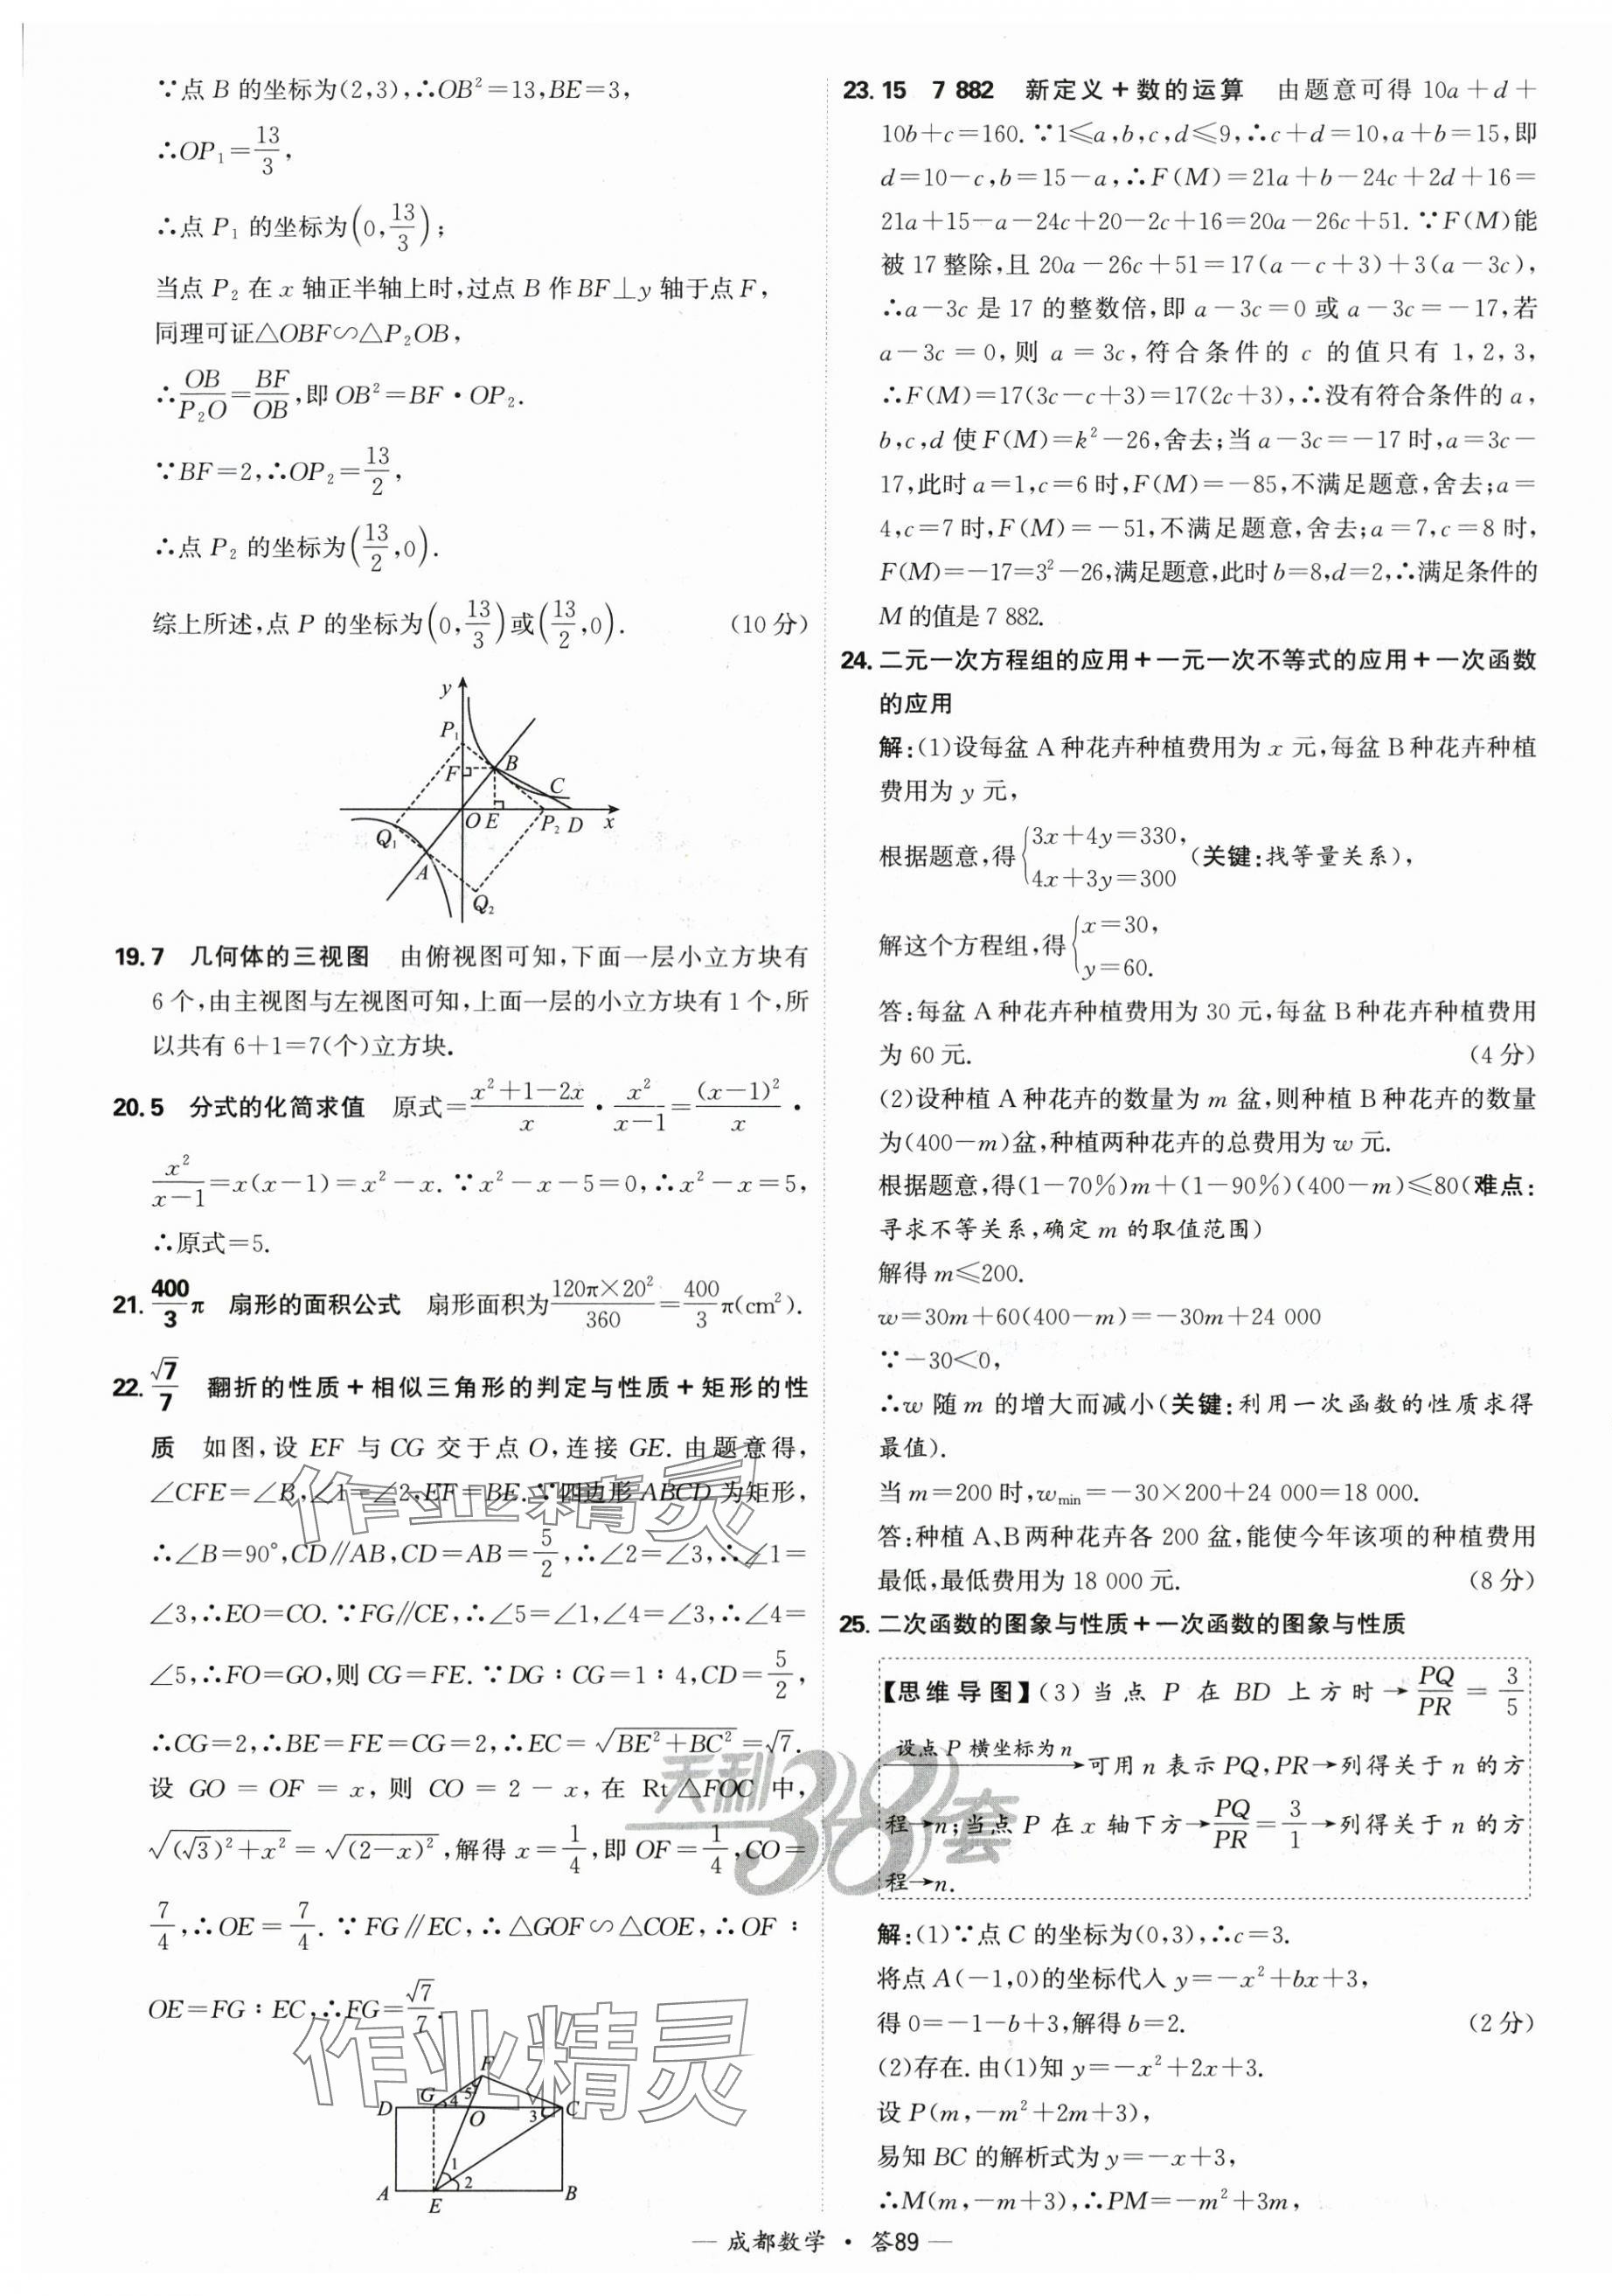 ∵点 B 的坐标为(2,3),∴OB²=13,BE=3,
∴OP₁=13/3,
∴点 P₁ 的坐标为(0,13/3);
当点 P₂ 在 x 轴正半轴上时,过点 B 作BF⊥y 轴于点F,
同理可证△OBF∽△P₂OB,
∴OB/P₂O=BF/OB,即 OB²=BF·OP₂.
∵BF=2,∴OP₂=13/2,
∴点 P₂ 的坐标为(13/2,0).
综上所述,点 P 的坐标为(0,13/3)或(13/2,0). (10 分)
y
P₁
F
B
C
O E P₂ D x
Q₁
A
Q₂
19. 7 几何体的三视图 由俯视图可知,下面一层小立方块有
6 个,由主视图与左视图可知,上面一层的小立方块有 1 个,所
以共有 6+1=7(个)立方块.
20. 5 分式的化简求值 原式=(x²+1-2x)/x·x²/(x-1)=(x-1)²/x·
x²/(x-1)=x(x-1)=x²-x.∵x²-x-5=0,∴x²-x=5,
∴原式=5.
21. 400/3π 扇形的面积公式 扇形面积为120π×20²/360=400/3π(cm²).
22. √7/7 翻折的性质+相似三角形的判定与性质+矩形的性
质 如图,设 EF 与 CG 交于点 O,连接 GE.由题意得,
∠CFE=∠B,∠1=∠2,EF=BE.∵四边形 ABCD 为矩形,
∴∠B=90°,CD∥AB,CD=AB=5/2,∴∠2=∠3,∴∠1=
∠3,∴EO=CO.∵FG∥CE,∴∠5=∠1,∠4=∠3,∴∠4=
∠5,∴FO=GO,则 CG=FE.∵DG∶CG=1∶4,CD=5/2,
∴CG=2,∴BE=FE=CG=2,∴EC=√(BE²+BC²)=√7.
设 GO=OF=x,则 CO=2-x,在 Rt△FOC 中,
√((√3)²+x²)=√((2-x)²),解得 x=1/4,即 OF=1/4,CO=
7/4,∴OE=7/4.∵FG∥EC,∴△GOF∽△COE,∴OF∶
OE=FG∶EC,∴FG=√7/7.
F
D G 4 5 O 3 C
1
2
A E B
23. 15 7 882 新定义+数的运算 由题意可得 10a+d+
10b+c=160.∵1≤a,b,c,d≤9,∴c+d=10,a+b=15,即
d=10-c,b=15-a,∴F(M)=21a+b-24c+2d+16=
21a+15-a-24c+20-2c+16=20a-26c+51.∵F(M)能
被 17 整除,且 20a-26c+51=17(a-c+3)+3(a-3c),
∴a-3c 是 17 的整数倍,即 a-3c=0 或 a-3c=-17,若
a-3c=0,则 a=3c,符合条件的 c 的值只有 1,2,3,
∴F(M)=17(3c-c+3)=17(2c+3),∴没有符合条件的 a,
b,c,d 使F(M)=k²-26,舍去;当 a-3c=-17 时,a=3c-
17,此时 a=1,c=6 时,F(M)=-85,不满足题意,舍去;a=
4,c=7 时,F(M)=-51,不满足题意,舍去;a=7,c=8 时,
F(M)=-17=3²-26,满足题意,此时 b=8,d=2,∴满足条件的
M 的值是 7 882.
24. 二元一次方程组的应用+一元一次不等式的应用+一次函数
的应用
解:(1)设每盆 A 种花卉种植费用为 x 元,每盆 B 种花卉种植
费用为 y 元,
根据题意,得{3x+4y=330, 4x+3y=300 (关键:找等量关系),
解这个方程组,得{x=30, y=60.
答:每盆 A 种花卉种植费用为 30 元,每盆 B 种花卉种植费用
为 60 元. (4 分)
(2)设种植 A 种花卉的数量为 m 盆,则种植 B 种花卉的数量
为(400-m)盆,种植两种花卉的总费用为 w 元.
根据题意,得(1-70%)m+(1-90%)(400-m)≤80(难点:
寻求不等关系,确定 m 的取值范围)
解得 m≤200.
w=30m+60(400-m)=-30m+24 000
∵-30<0,
∴w 随 m 的增大而减小(关键:利用一次函数的性质求得
最值).
当 m=200 时,wmin=-30×200+24 000=18 000.
答:种植 A、B 两种花卉各 200 盆,能使今年该项的种植费用
最低,最低费用为 18 000 元. (8 分)
25. 二次函数的图象与性质+一次函数的图象与性质
【思维导图】(3)当点 P 在 BD 上方时→PQ/PR=3/5
设点 P 横坐标为 n→可用 n 表示 PQ,PR→列得关于 n 的方
程→n;当点 P 在 x 轴下方→PQ/PR=3/1→列得关于 n 的方
程→n.
解:(1)∵点 C 的坐标为(0,3),∴c=3.
将点 A(-1,0)的坐标代入 y=-x²+bx+3,
得 0=-1-b+3,解得 b=2. (2 分)
(2)存在.由(1)知 y=-x²+2x+3.
设 P(m,-m²+2m+3),
易知 BC 的解析式为 y=-x+3,
∴M(m,-m+3),∴PM=-m²+3m,
作业精灵
天利38套
作业精灵
— 成都数学 · 答89 —